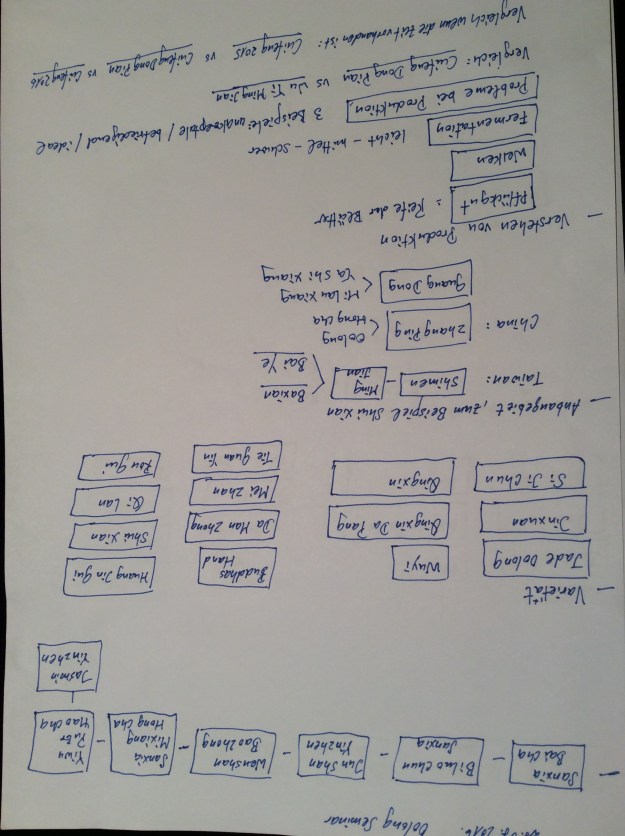 Oolong Seminar
- Sanxia Bai Cha - Biluochun Sanxia - Junshan Yinzhen - Wenshan Baozhong - Sanxia Mixiang Hong Cha - Yiwu PuEr Mao Cha
Jasmin Yinzhen
- Varietät
Jade Oolong Wuyi Buddhas Hand Huang Jin Gui
Jinxuan Qingxin Da Pang Da Man Zhong Shui Xian
Si Ji Chun Qingxin Mei Zhan Qi Lan
Tie Guan Yin Rou Gui
- Anbaugebiet, zum Beispiel Shui Xian
Taiwan: Shimen - Ming Jian < Baxian
Bai Ye
China: Zhang Ping < Oolong
Hong Cha
Guang Dong < Mi Lan Xiang
Ya Shi Xiang
- Verstehen von Produktion
Pflückgut = Reife der Blätter
Welken
Fermentation leicht - mittel - schwer
Probleme bei Produktion, 3 Beispiele: unakzeptable / befriedigend / ideal
Vergleich: Cuifeng Dong Pian vs Wu Yi Ming Jian
Vergleich wenn die Zeit vorhanden ist: Cuifeng 2015 vs Cuifeng Dong Pian vs Cuifeng 2016